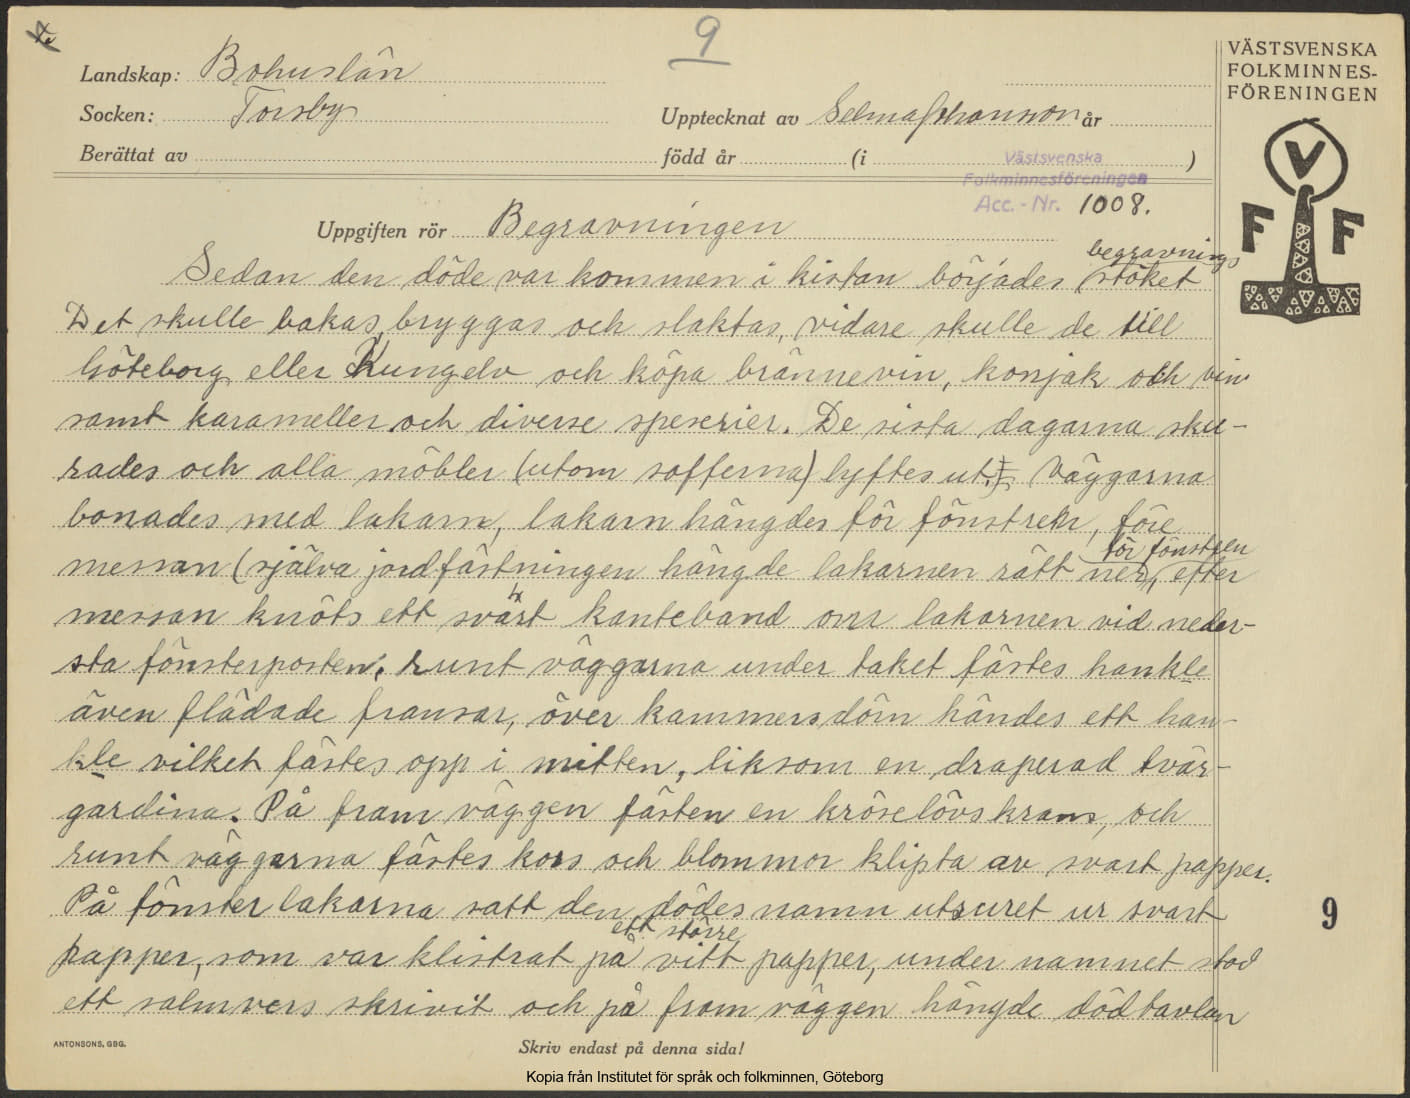 9
VÄSTSVENSKA
FOLKMINNES-
FÖRENINGEN
V
F F
Landskap: Bohuslän
Socken: Torsby
Upptecknat av Selma Johansson år
Berättat av född år (i )
Västsvenska
Folkminnesföreningen
Acc.-Nr. 1008.
Uppgiften rör Begravningen
begravnings
Sedan den döde var kommen i kistan börjades stöket
Det skulle bakas, bryggas och slaktas, vidare skulle de till
Göteborg eller Kungelv och köpa brännevin, konjak och vin
samt karameller och diverse speserier. De sista dagarna sku-
rades och alla möbler (utom sofferna) lyftes ut. Väggarna
bonades med lakarn, lakarn hängdes för fönstren, före
för fönstren
messan (själva jordfästningen hängde lakarnen rätt ner, efter
messan knöts ett svart kanteband om lakarnen vid neder-
sta fönsterposten. runt väggarna under taket fästes hankle
även flädade fransar, över kammersdörn händes ett han-
kle vilket fästes opp i mitten, liksom en draperad tvär-
gardina. På fram väggen fästen en kröselövskrans, och
runt väggarna fästes kors och blommor klipta av svart papper.
På fönsterlakarna satt den dödes namn utsuret ur svart
ett större
papper, som var klistrat på vitt papper, under namnet stod
ett salmvers skrivit och på fram väggen hängde dödtavlan
9
ANTONSONS, GBG.
Skriv endast på denna sida!
Kopia från Institutet för språk och folkminnen, Göteborg